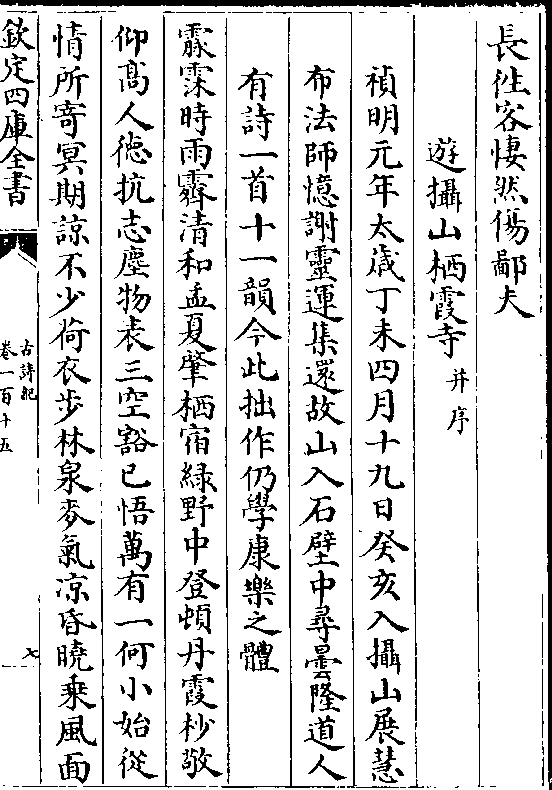 長徃客悽然傷鄙夫
遊攝山栖霞寺 并序
禎明元年太歳丁未四月十九日癸亥入攝山展慧
布法師憶謝靈運集還故山入石壁中尋曇隆道人
有詩一首十一韻今此拙作仍學康樂之體
霡霂時雨霽清和孟夏肇栖宿綠野中登頓丹霞杪敬
仰髙人徳抗志塵物表三空豁已悟萬有一何小始從
情所寄冥期諒不少荷衣步林泉麥氣凉昏曉乗風面
欽定四庫全書
古詩紀
卷一百十五
七